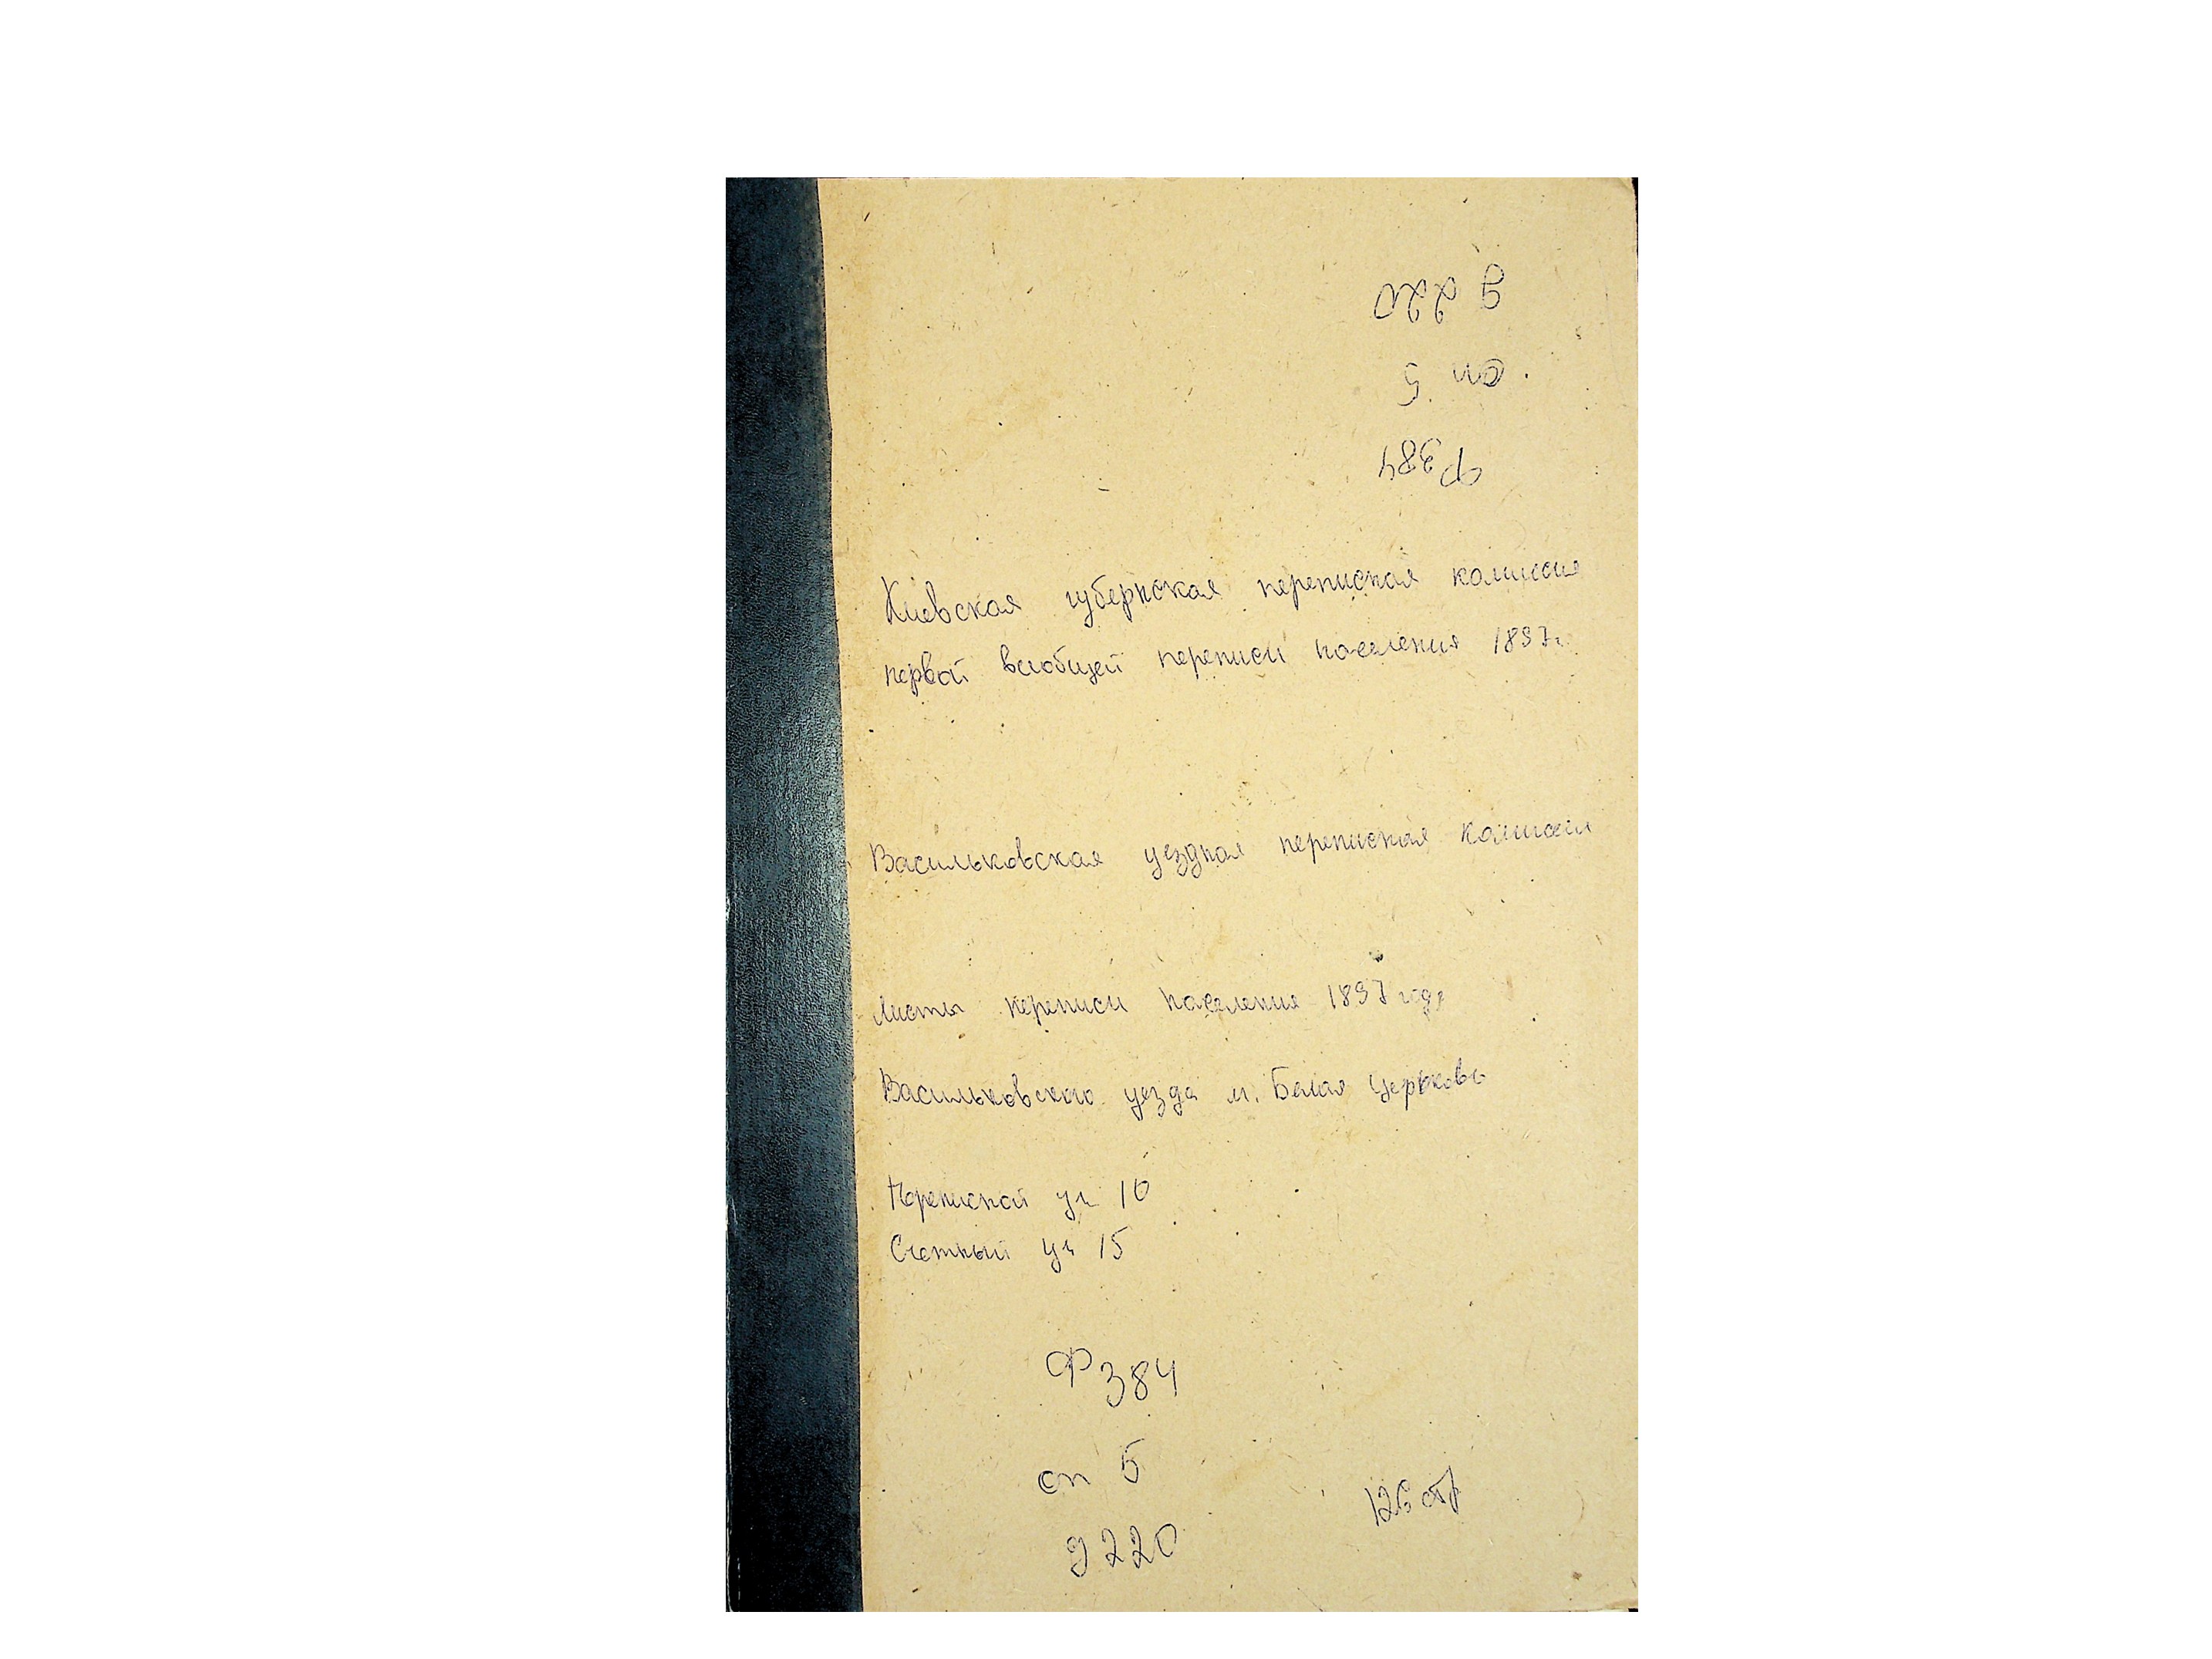 д 220
оп 5
Ф 384
Киевская губернская переписная комиссия
первой всеобщей переписи населения 1897г.
Васильковская уездная переписная комиссия
Листы переписи населения 1897 года
Васильковского уезда м. Белая Церковь
Переписной уч 10
Счетный уч 15
Ф 384
оп 5
д 220
126 стр